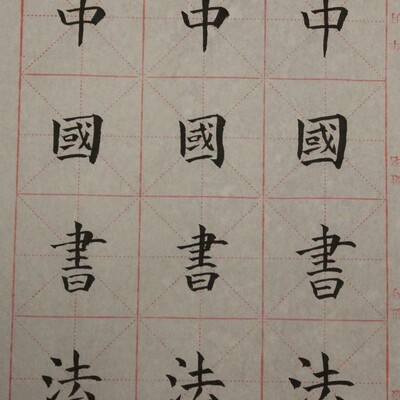 中國書法
中國書法
中國書法